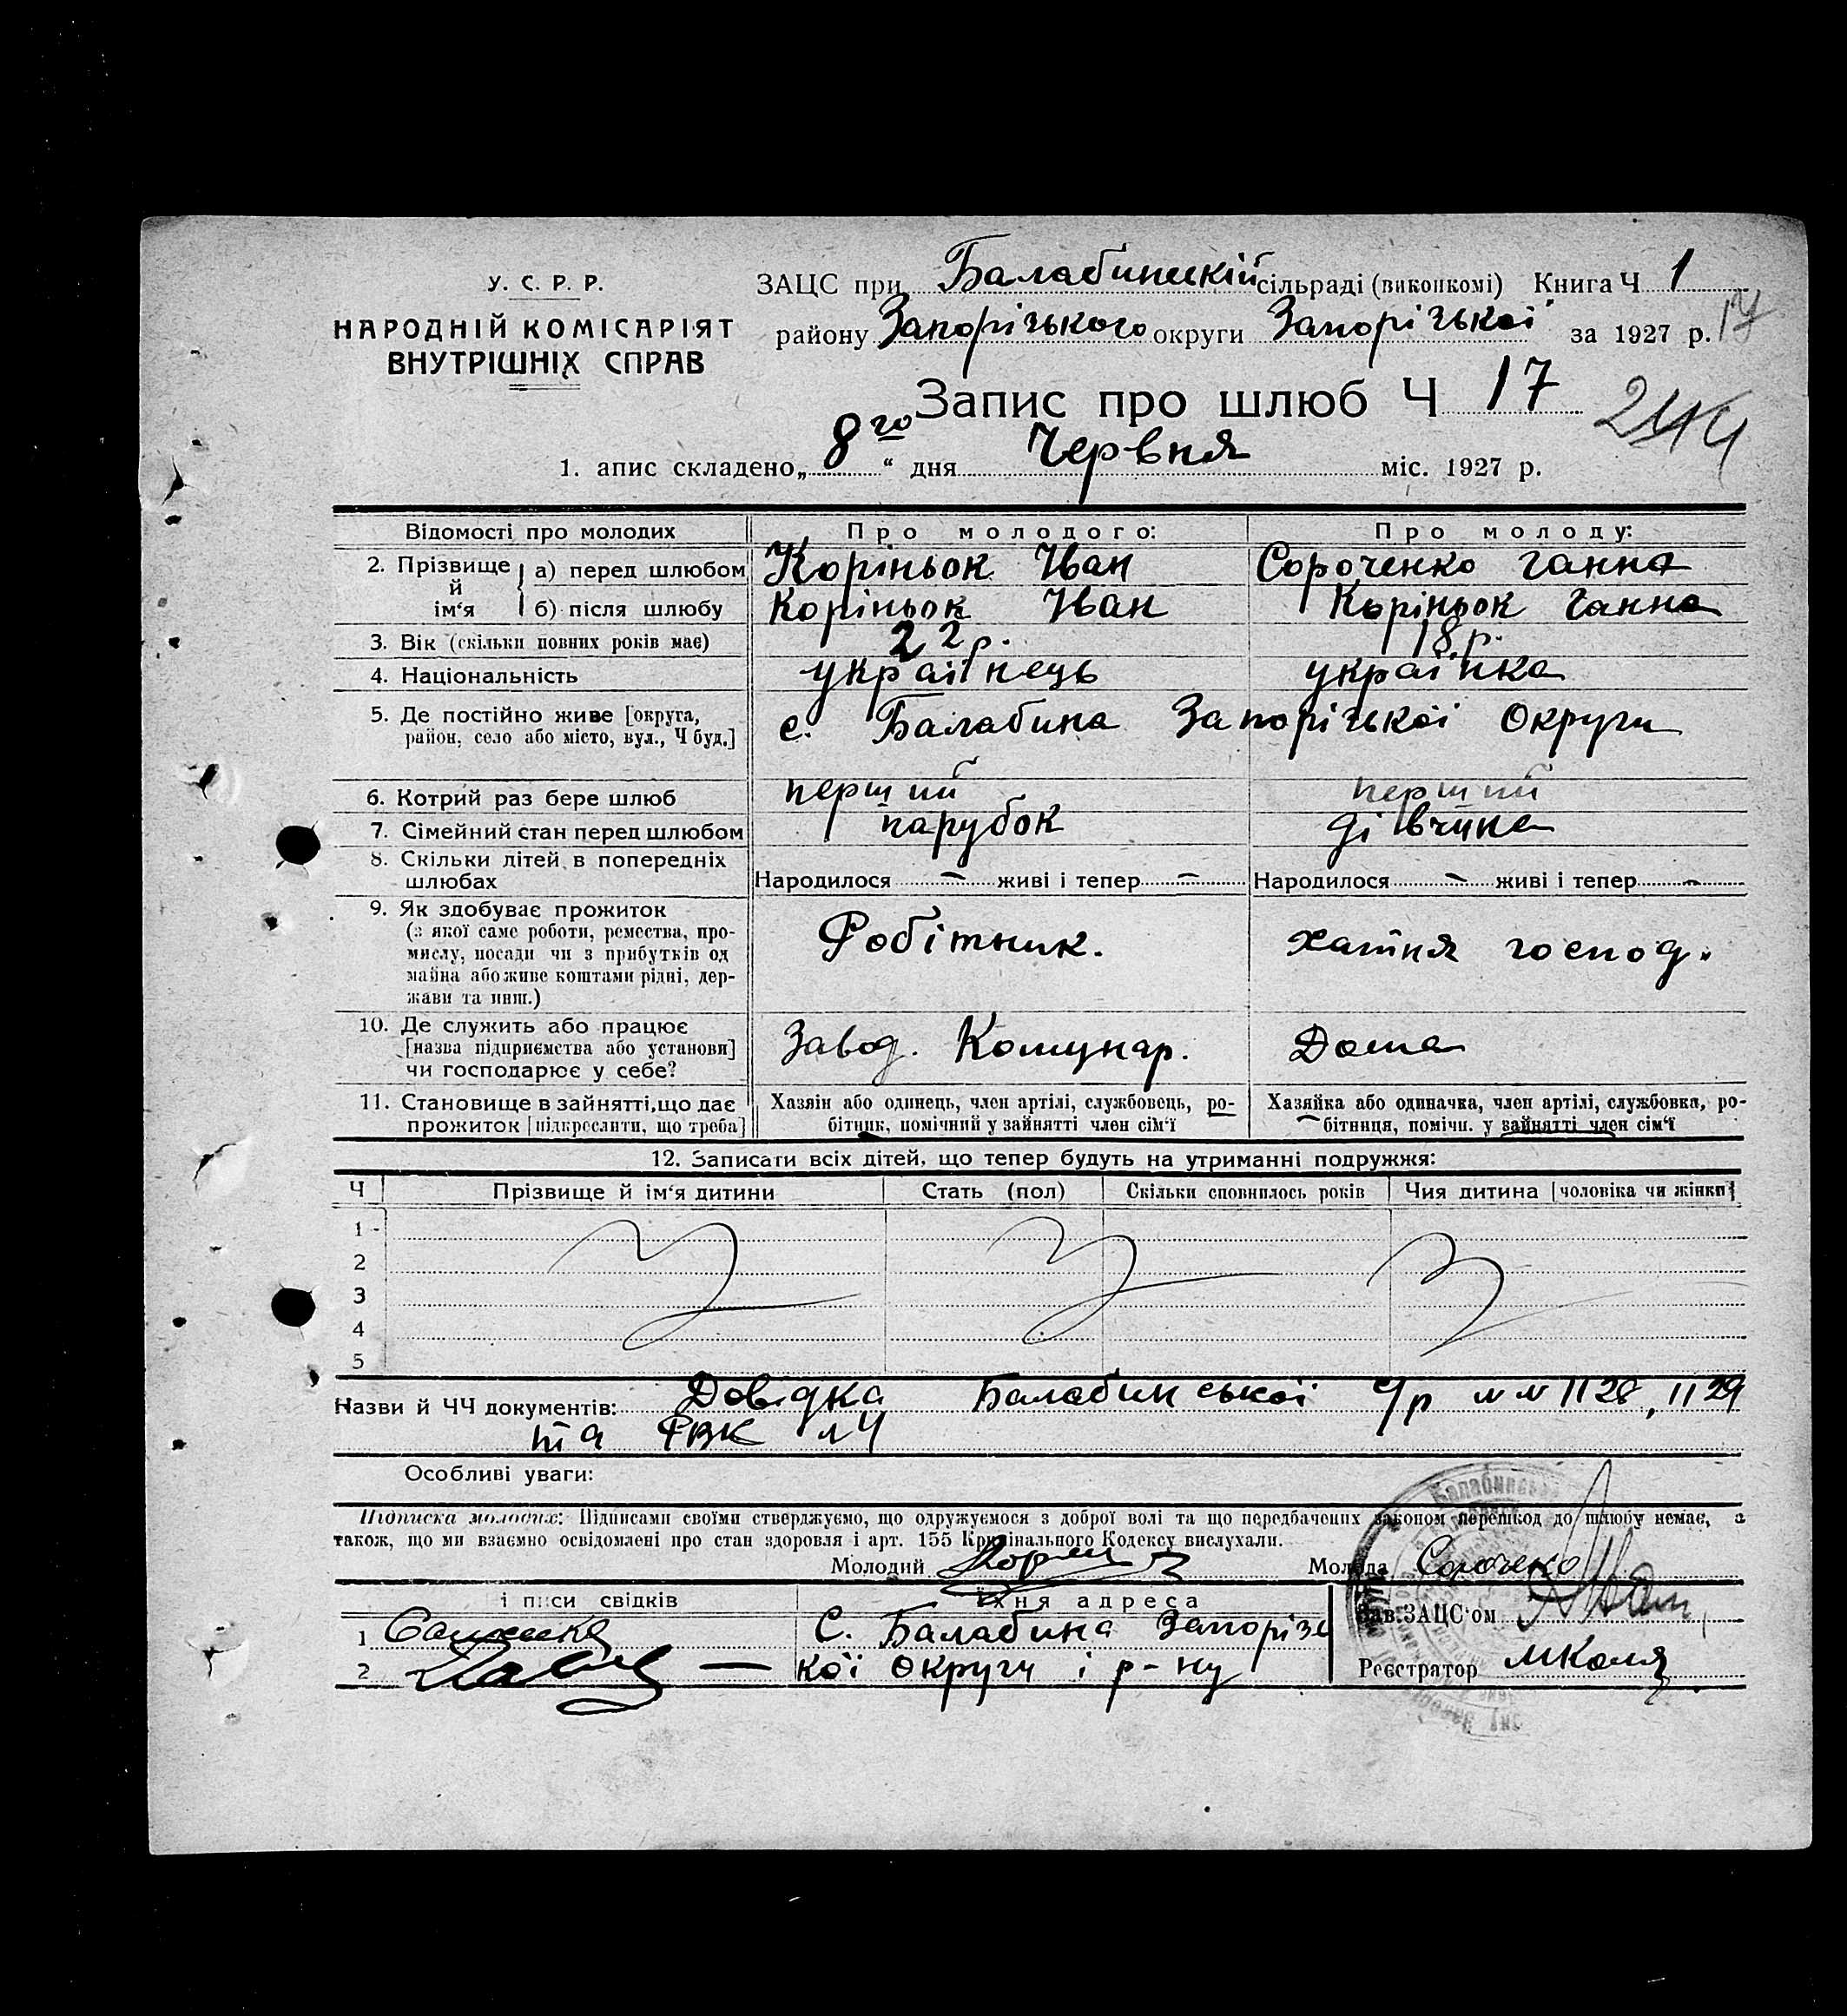 У. С. Р. Р.
НАРОДНІЙ КОМІСАРІЯТ
ВНУТРІШНІХ СПРАВ
ЗАЦС при Балабинській сільраді (виконкомі) Книга Ч 1
району Запорізького округи Запорізької за 1927 р. 17
Запис про шлюб Ч 17
244
1. апис складено „8го“ дня Червня міс. 1927 р.
Відомості про молодих Про молодого: Про молоду:
2. Прізвище й ім‘я а) перед шлюбом Коріньок Іван Сороченко Ганна
б) після шлюбу Коріньок Іван Коріньок Ганна
3. Вік (скільки повних років має) 22 р. 18 р.
4. Національність українець українка
5. Де постійно живе [округа, с. Балабина Запорізької Округи
район, село або місто, вул., Ч буд.]
6. Котрий раз бере шлюб перший перший
7. Сімейний стан перед шлюбом парубок дівчина
8. Скільки дітей в попередніх
шлюбах Народилося — живі і тепер — Народилося — живі і тепер —
9. Як здобуває прожиток Робітник. хатня господ.
(з якої саме роботи, ремества, про-
мислу, посади чи з прибутків од
майна або живе коштами рідні, дер-
жави та инш.)
10. Де служить або працює Завод. Комунар. Дома
[назва підприємства або установи]
чи господарює у себе?
11. Становище в зайнятті, що дає Хазяїн або одинець, член артілі, службовець, ро- Хазяйка або одиначка, член артілі, службовка, ро-
прожиток [підкреслити, що треба] бітник, помічний у зайнятті член сім‘ї бітниця, помічн. у зайнятті член сім‘ї
12. Записати всіх дітей, що тепер будуть на утриманні подружжя:
Ч Прізвище й ім‘я дитини Стать (пол) Скільки сповнилось років Чия дитина [чоловіка чи жінки]
1
2
3
4
5
Назви й ЧЧ документів: Довідка Балабинської с/р №№ 1128, 1129
та РВК
Особливі уваги:
Підписка молодих: Підписами своїми стверджуємо, що одружуємося з доброї волі та що передбачених законом перешкод до шлюбу немає, а
також, що ми взаємно освідомлені про стан здоров‘я і арт. 155 Кримінального Кодексу вислухали.
Молодий Молода Сороченко
і писи свідків їхня адреса Зав. ЗАЦС‘ом
1 С. Балабина Запорізь
2 кої округи і р-ну Реєстратор